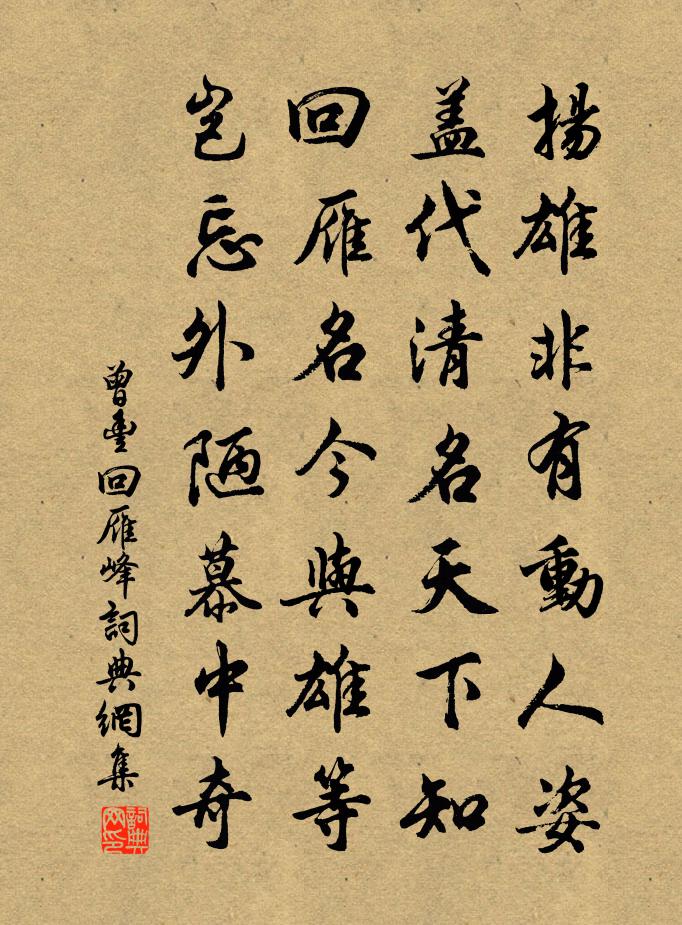 揚雄非有動人姿
盖代清名天下知
回雁名今與雄等
豈忘外陋慕中奇
曾豊回雁峰詞典網集
詞典网印